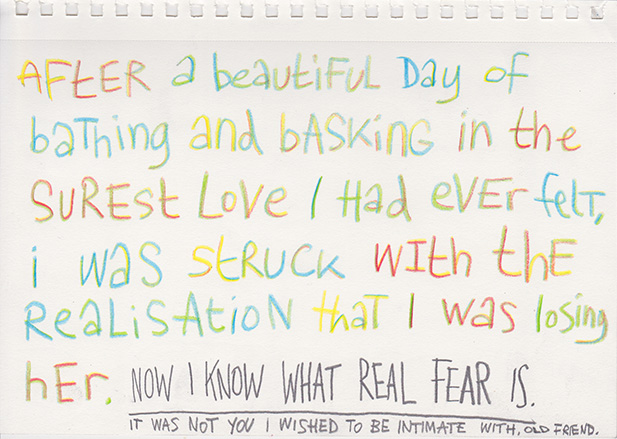 AFtER a beaUtiFUL Day of
baThing and bASKiNG in the
SUREst LOVE I Had eVEr felT,
i was stRUCK WIth thE
REaLiSAtioN thaT I was losing
hEr. NOW I KNOW WHAT REAL FEAR IS.
IT WAS NOT YOU I WISHED TO BE INTIMATE WITH, OLD FRIEND.